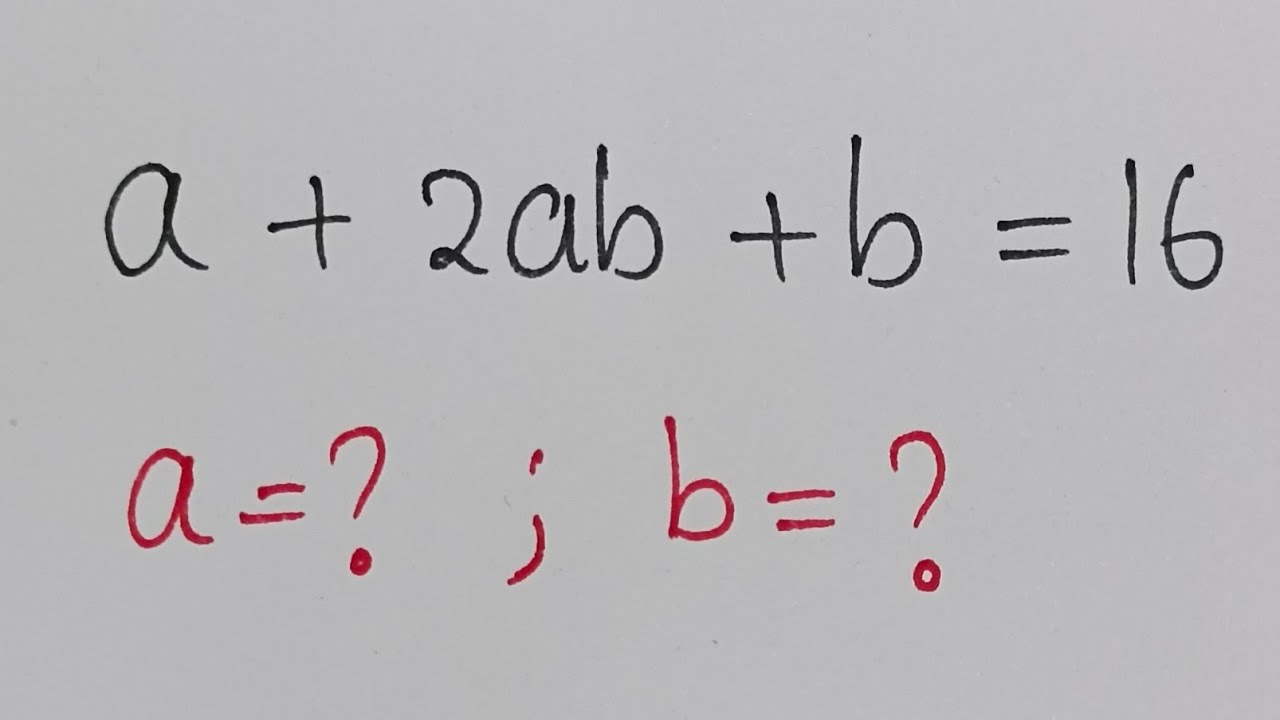 a + 2ab + b = 16
a = ? ; b = ?